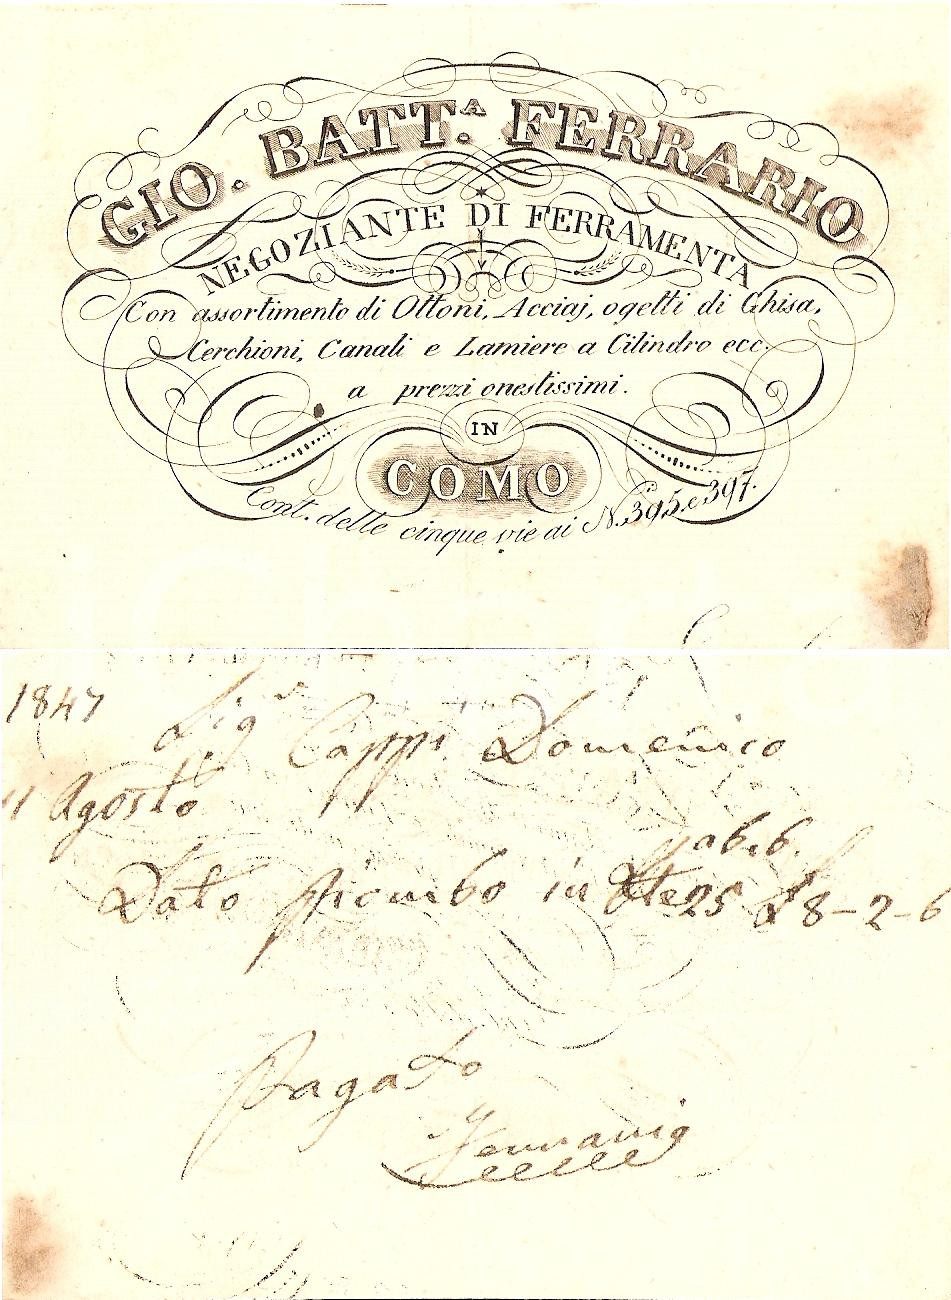 GIO. BATT.A FERRARIO
NEGOZIANTE DI FERRAMENTA
Con assortimento di Ottoni, Acciaj, ogetti di Ghisa,
Cerchioni, Canali e Lamiere a Cilindro ecc.
a prezzi onestissimi.
IN
COMO
Cont. delle cinque vie ai N.ri 395. e 397.
1847 Sigr Cappi Domenico
11 Agosto
a 6. 6.
Dato piombo in 25 £ 8-2-6
Pagato
Ferrario